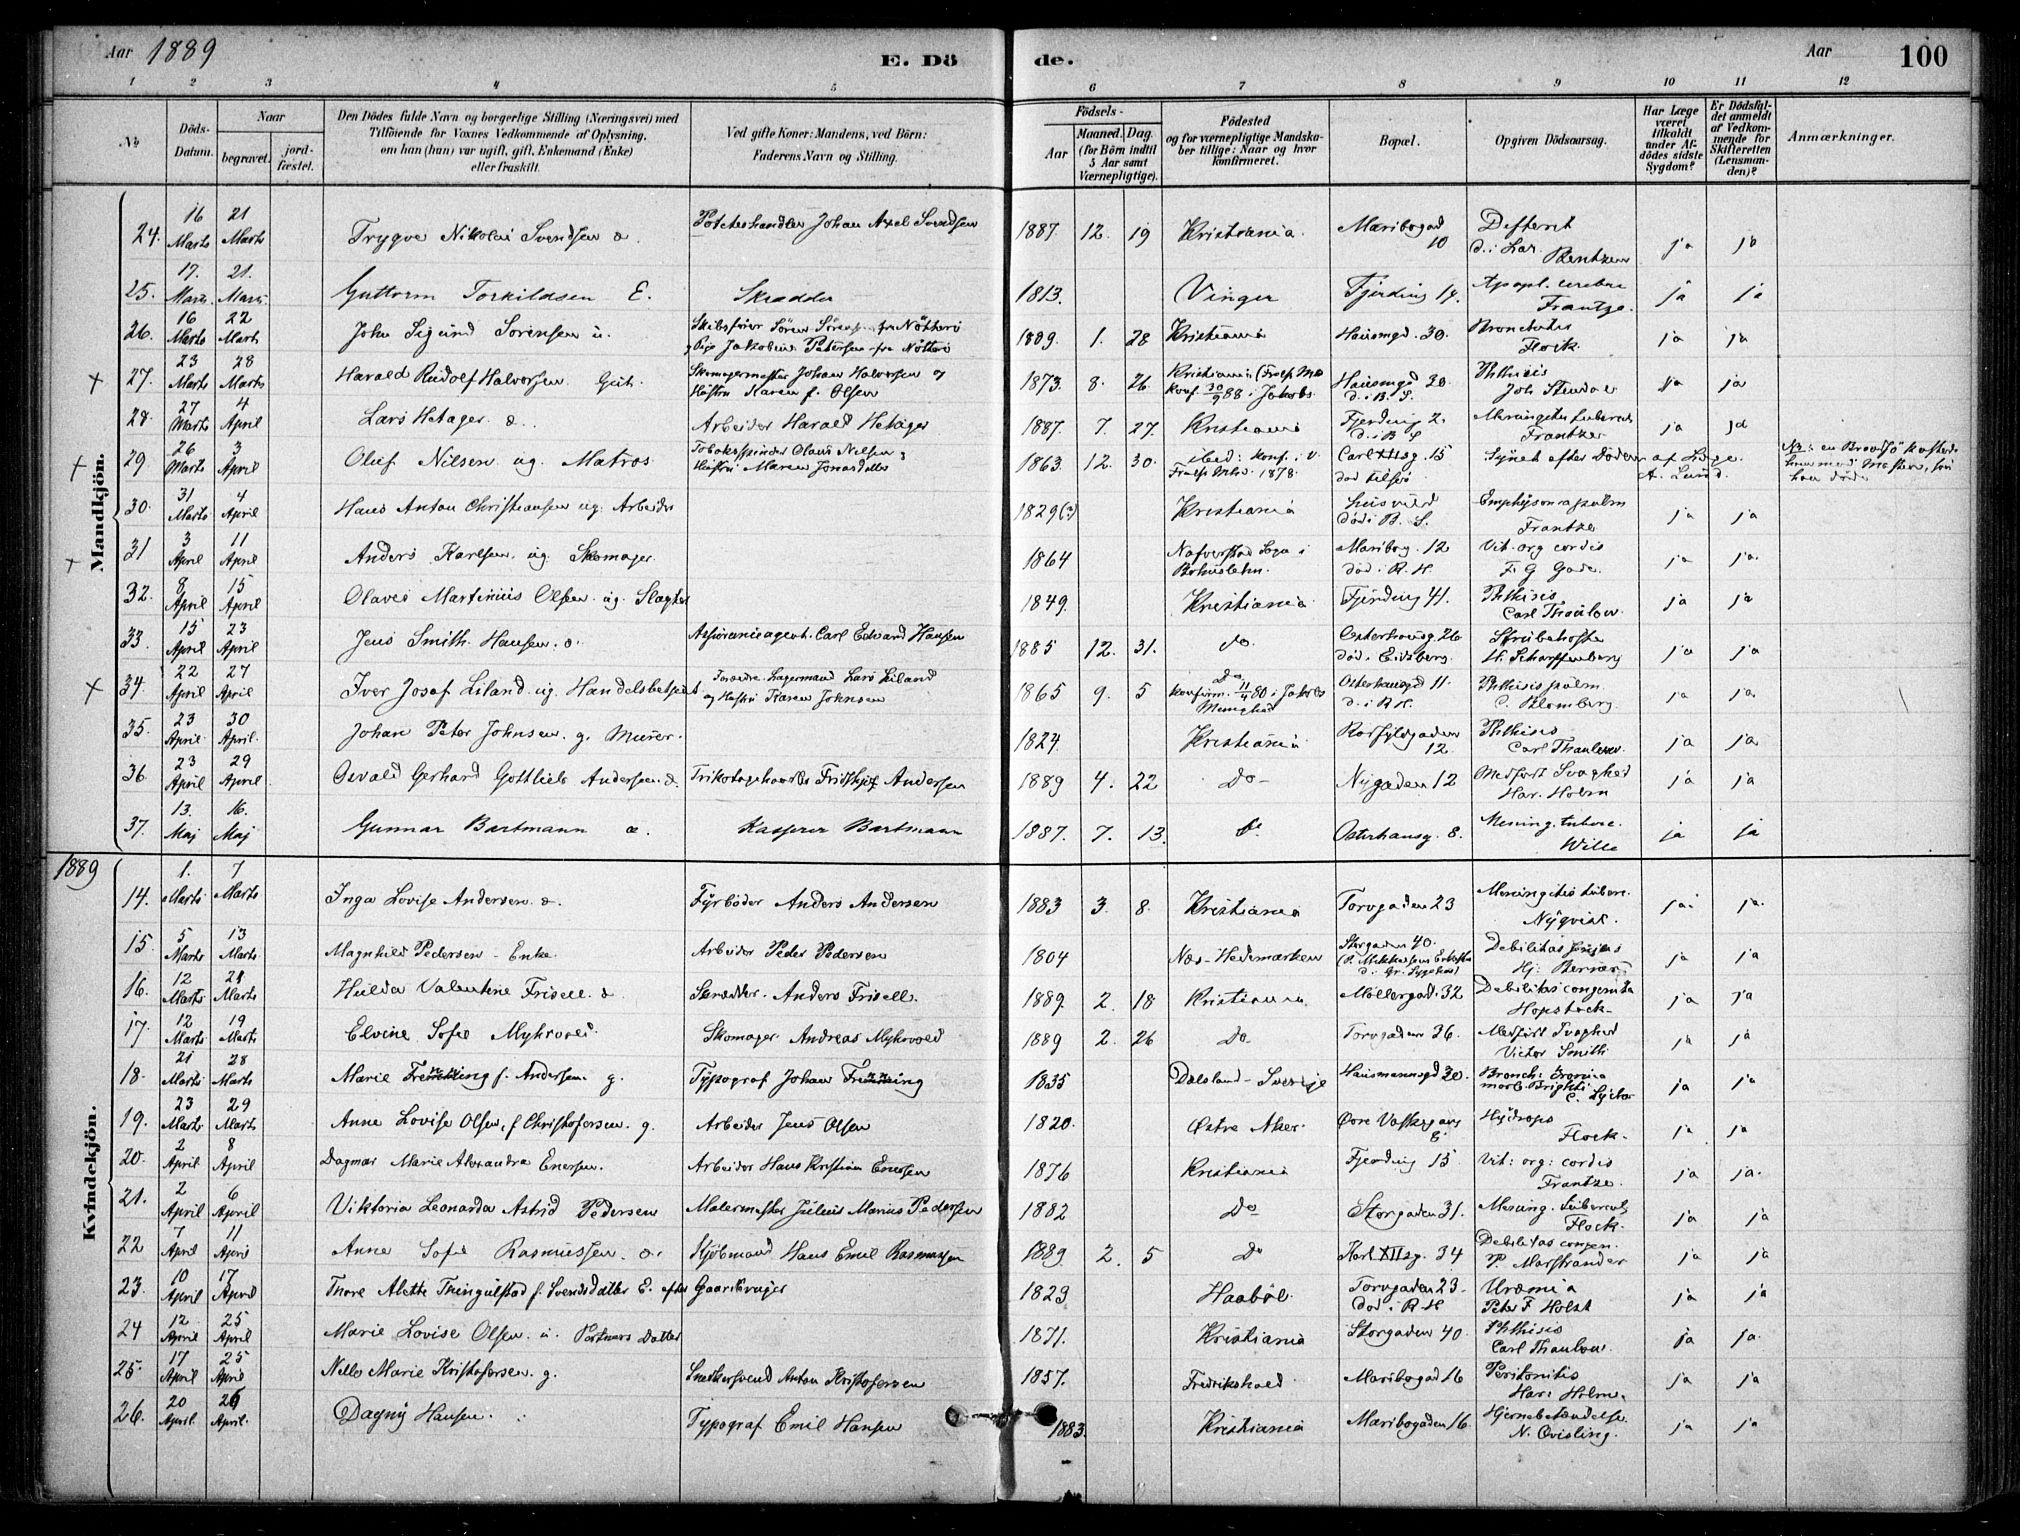 Aar 1889 E. Dö
de. Aar 100
1 2 3 4 5 6 7 8 9 10 11 12
No
Döds-
Datum.
Naar
begravet.
jord-
fæstet.
Den Dödes fulde Navn og borgerlige Stilling (Næringsvei) med
Tilföiende for Voxnes Vedkommende af Oplysning,
om han (hun) var ugift, gift, Enkemand (Enke)
eller fraskilt.
Ved gifte Koner: Mandens, ved Börn:
Faderens Navn og Stilling.
Födsels-
Aar
Maaned. Dag.
(for Börn indtil
5 Aar samt
Værnepligtige).
Födested
og for værnepligtige Mandska-
ber tillige: Naar og hvor
konfirmeret.
Bopæl.
Opgiven Dödsaarsag.
Har Læge
været
tilkaldt
under Af-
dödes sidste
Sygdom?
Er Dödsfal-
det anmeldt
af Vedkom-
mende for
Skifteretten
(Lensman-
den)?
Anmærkninger.
Mandkjön.
24. 16 Marts 21 Marts Trygve Nikolai Svendsen Johan Axel Svendsen 1887 12. 19 Kristiania Maribogad 10 Difterit Bentzen ja ja
25. 17. Marts 21. Marts Guttorm Torkildsen E. Skrædder 1813. Vinger Fjerding 14. Apopl. cerebri Frantze. ja ja
26. 16 Marts 22 Marts John Sigurd Sørensen u. Søren Sørens. fra Nötterö Petersen fra Nötterö 1889. 1. 28 Kristiania Hausmgd. 30. Bronchitis Flock. ja ja
27. 23 Marts 28 Marts Harald Rudolf Halvorsen Gut. Skomagermester Johan Halvorsen og Hustru Karen f. Olsen 1873. 8. 26 Kristiania konf. 30/9 88 i Jakobs. Hausmgd 30. d. i B. S. Phthisis ja ja
28. 27 Marts 4 April Lars Hetager Arbeider Harald Hetager 1887. 7. 27. Kristiania Fjerding 2. d. i B S Frantze ja ja
29 26 Marts 3 April Oluf Nilsen ug. Matros Olaus Nilsen & Hustru Maren 1863. 12. 30. 1878. Carl XII sg. 15 Synet efter Döden af Læge A. Lund.
30. 31 Marts 4 April Hans Anton Christiansen ug. Arbeider 1829(?) Kristiania död i B. S. Emphysema pulm Frantze ja ja
31 3 April 11 April Anders Karlsen. ug. Skomager. 1864 Maribog. 12 död i R. H. Vit. org cordis F. G Gade. ja ja.
32. 8 April 15 April Olaves Martinius Olsen ug. Slagter 1849. Kristiania Fjerding 41. Phthisis Carl Thaulow ja ja
33. 15 April 23 April Jens Smith Hansen. Assuranceagent. Carl Edvard Hansen 1885 12. 31. do. Osterhausg. 26 död i Eidsberg. Strubehoste H. Scharffenberg ja ja
34. 22 April 27 April Iver Josef Liland ug. Handelsbetjent Lagermand Lars Liland og Hustru Karen Johnsen 1865 9. 5 Do konfirm. 11/4 80 i Jakobs Menighed Osterhausgd 11. d. i R H. Phthisis pulm. C. Blomberg. ja ja.
35. 23 April 30 April. Johan Peter Johnsen. g. Murer. 1824. Kristiania 12. Phthisis Carl Thaulow. ja ja
36. 23 April 29 April Osvald Gerhard Gottlieb Andersen. Fridthjof Andersen 1889 4. 22 Do Nygaden 12 Medfödt Svaghed Har. Holm ja ja
37. 13. Maj 16. Maj Gunnar Bartmann Kasserer Bartmann 1887. 7. 13. do Osterhausg. 8. Mening. tuberc. Wille ja ja
1889
Kvindekjön.
14. 1. Marts 7 Marts Inga Lovise Andersen. Fyrböder Anders Andersen 1883 3. 8. Kristiania Torvgaden 23 Meningitis tuberc. Nyqvist. ja ja.
15. 5 Marts 13 Marts Magnhild Pedersen - Enke. Arbeider Peder Pedersen 1804 Næs - Hedemarken Storgaden 40. Debilitas senilis ja ja
16. 12 Marts 21 Marts Hulda Valentine Frisell. Skrædder. Anders Frisell. 1889. 2. 18 Kristiania Möllergad. 32 Debilitas congenita Hopstock ja ja
17. 12 Marts 19 Marts Elvine Sofie Myhrvold. Skomager. Andreas Myhrvold 1889 2. 26 Do Torvgaden 36. Medfödt Svaghed Victor Smith ja ja
18. 21 Marts 28 Marts Marie f. Andersen. g. Typograf Johan 1835 Dalsland - Sverige Hausmannsgd 30. ja ja
19. 23 Marts 29 Marts Anne Lovise Olsen, f Christofersen. g. Arbeider Jens Olsen 1820. Østre Aker Øvre Hydrops Flock. ja ja
20. 2 April 8 April Dagmar Marie Alexandra Enersen. Arbeider Hans Kristian Enersen 1876 Kristiania Fjerding 15 Vit: org: cordis Frantze. ja ja.
21. 2 April 6 April Viktoria Leonarda Astrid Pedersen Malermester Julius Marius Pedersen 1882 Do Storgaden 31. Mening. tubercul. Flock. ja ja
22 7 April 11 April Anne Sofie Rasmussen. Kjöbmand Hans Emil Rasmussen 1889. 2. 5 Do Karl XII sg. 34 Debilitas congen. P. Marstrander ja ja
23. 10 April 17 April Thore Alette Tringulstad f. Svendsdatter E. efter Gaardbruger 1829 Haaböl. Torvgaden 23 död i R H Uræmia Peter F Holst ja ja
24 12 April 25 April Marie Lovise Olsen. u. Portners Datter 1871. Kristiania Storgaden 40. Phthisis Carl Thaulow. ja ja.
25. 17 April 25 April Nelle Marie Kristofersen. g. Snedkersvend Anton Kristofersen 1857. Fredrikshald Maribogad 16 Peritonitis Har. Holm. ja ja
26. 20 April. 26 April. Dagny Hansen. Typograf Emil Hansen 1883. Kristiania Maribogaden 16. Hjernebetændelse. N. Qvisling. ja ja